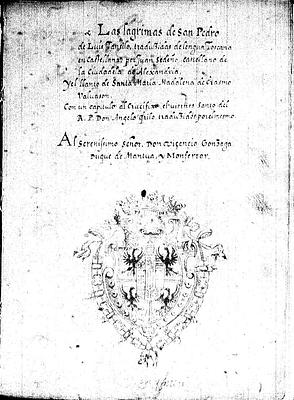 Las lagrimas de San Pedro
de Luis Tansilo, traduzidas de lengua Toscana
en Castellano: por Juan Sedeño, castellano de
la Ciudadela de Alexandria.
Y el llanto de Santa Maria Madalena de Erasmo
Valvason.
Con un capitulo al Crucifixo el viernes Santo del
R. P. Don Angelo Grilo, traduzidas por el mesmo.
Al Serenissimo Señor, Don Vicencio Gonzaga
Duque de Mantua, y Monferrat.